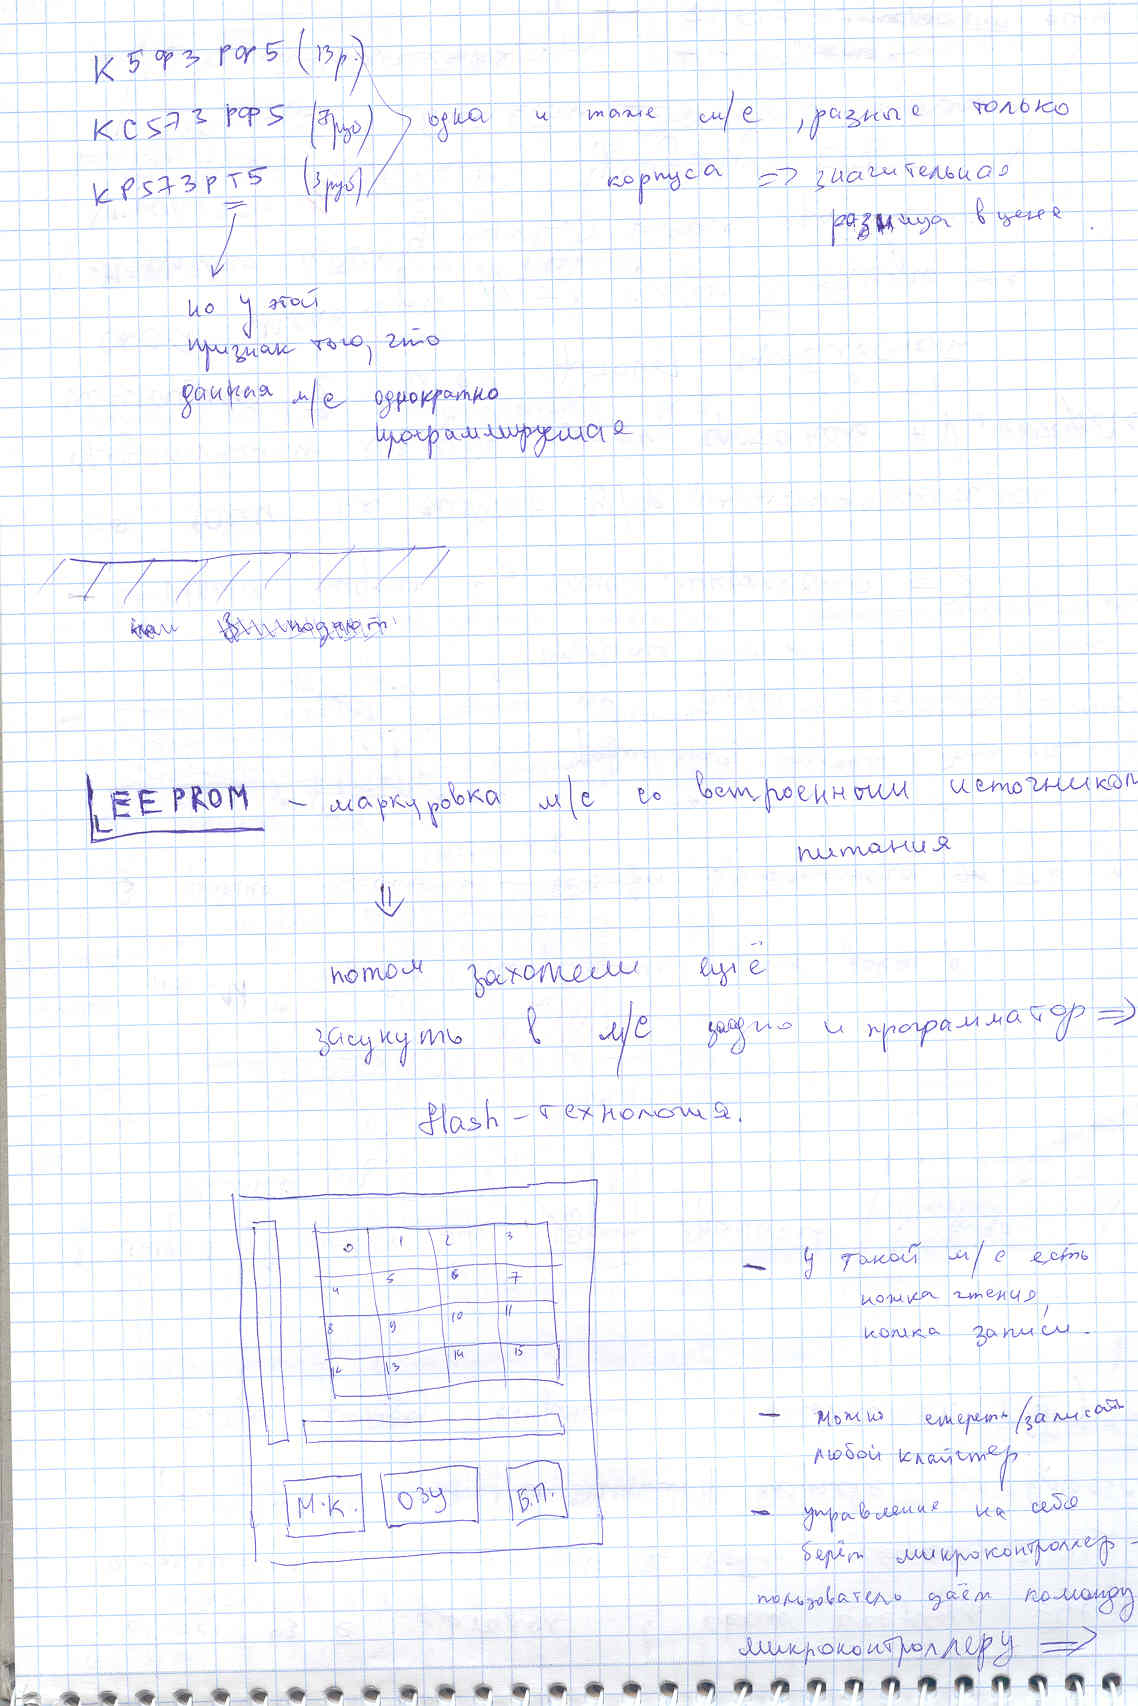 К5ФЗ РФ5 (13р.)
КС573 РФ5 (7руб)
одна и таже м/с, разные только
КР573РТ5 (3руб)
корпуса => значительная
разница в цене.
но у этой
признак того, что
данная м/с однократно
программируемая
EEPROM - маркуровка м/с со встроенным источником
питания
потом захотели ещё
засунуть в м/с заодно и программатор =>
flash - технология.
0 1 2 3
4 5 6 7
8 9 10 11
12 13 14 15
М.К. ОЗУ В.П.
- У такой м/с есть
ножка чтения,
ножка записи.
- можно стереть/записать
любой клайстер
- управление на себя
берёт микроконтроллер -
пользователь даёт команду
микроконтроллеру =>